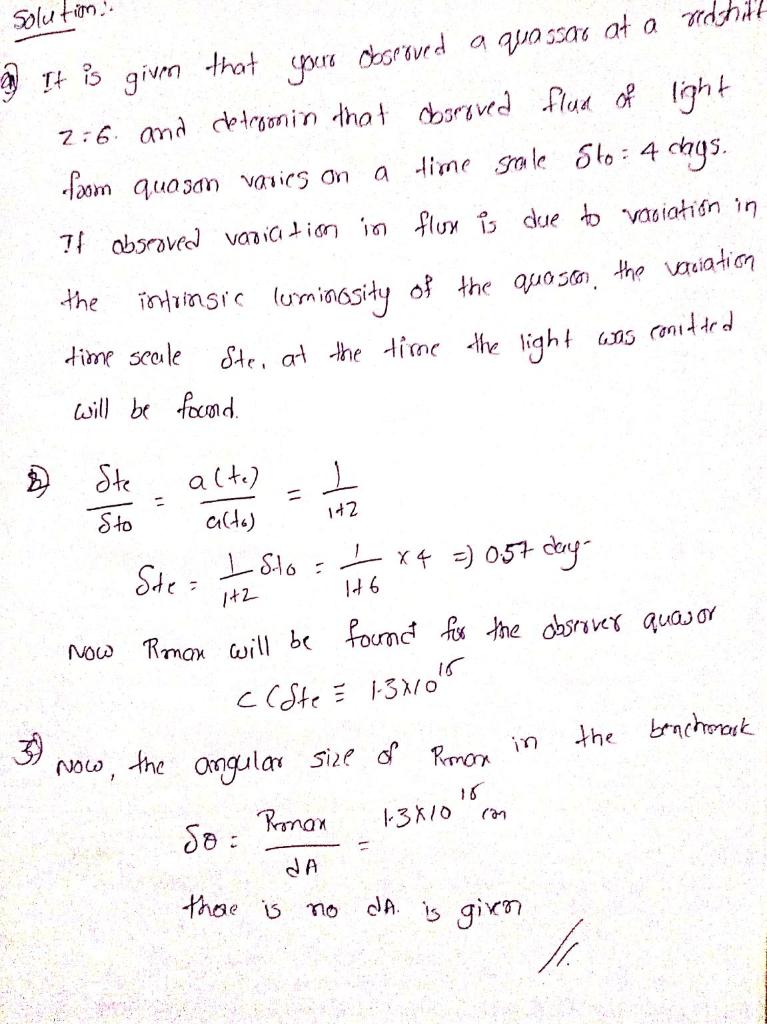 Solution:
a) It is given that your observed a quassar at a redshift
z = 6. and determin that observed flux of light
from quasar varies on a time scale δto = 4 days.
If observed variation in flux is due to variation in
the intrinsic luminosity of the quasar, the variation
time scale δte, at the time the light was emitted
will be found.
2) δte / δto = a(te) / a(to) = 1 / 1+z
δte = 1 / 1+z δto = 1 / 1+6 x 4 => 0.57 day-
Now Rmax will be found for the observer quasor
c (δte ≡ 1.3x10^15
3) Now, the angular size of Rmax in the benchmark
δθ = Rmax / dA = 1.3x10^15 cm
there is no dA. is given